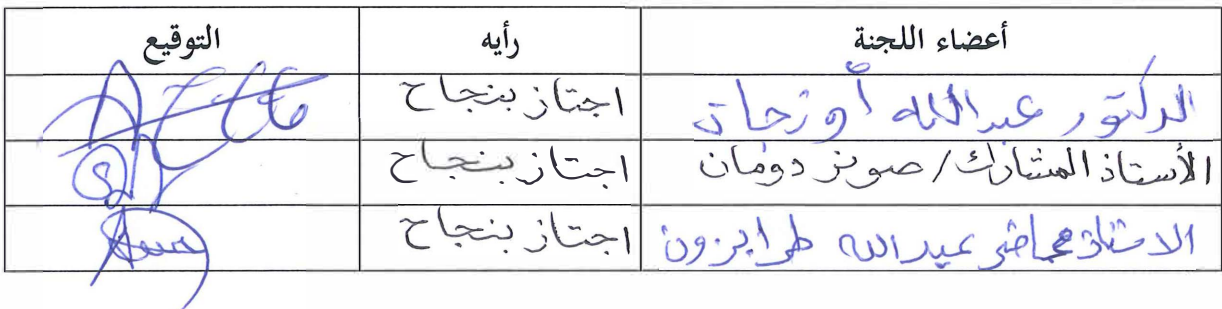 أعضاء اللجنة رأيه التوقيع
الدكتور عبدالله أوزجان اجتاز بنجاح
الأستاذ المشارك/صونر دومان اجتاز بنجاح
الاستاذ محاضر عبدالله طرابزون اجتاز بنجاح